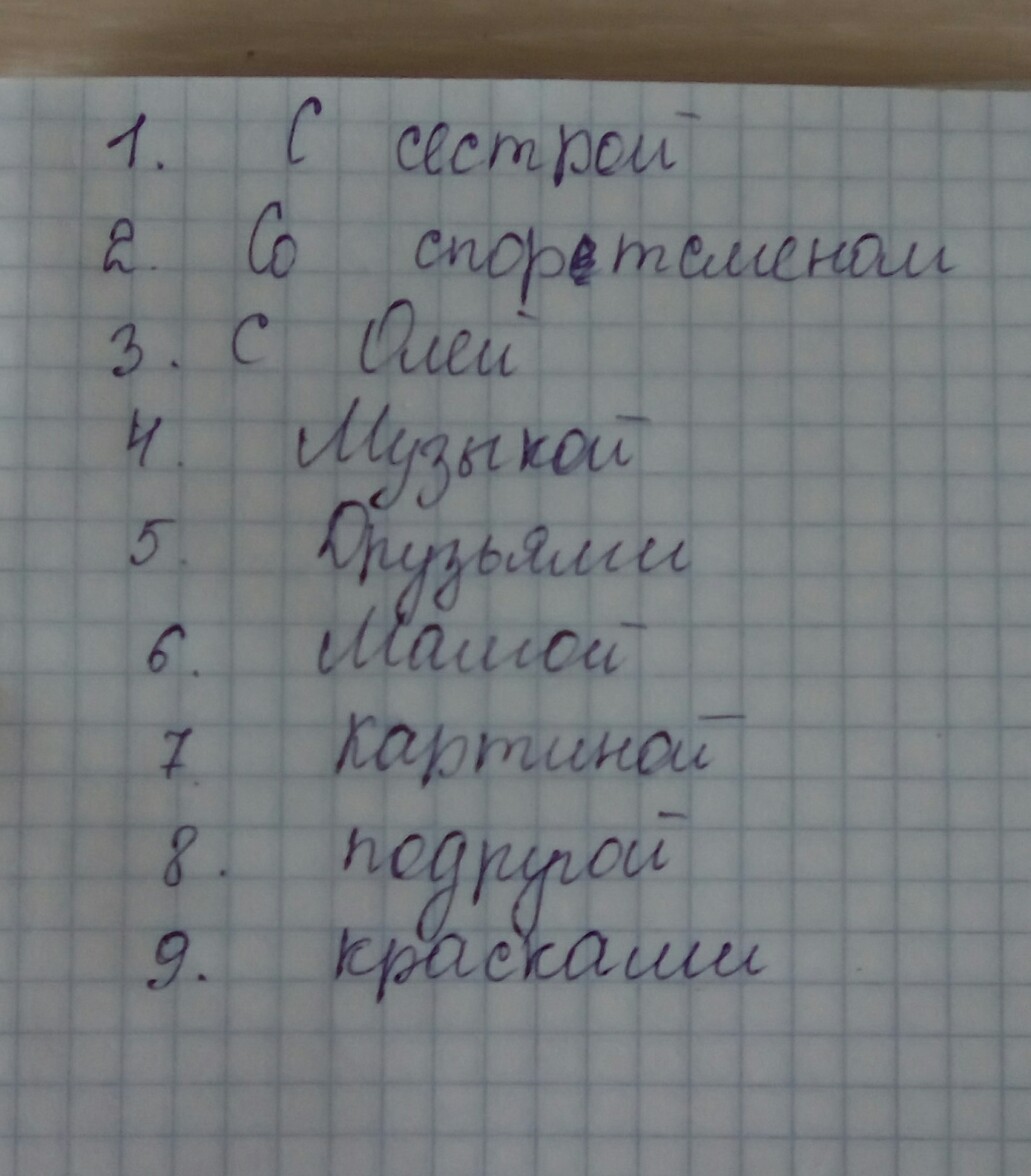 1. С сестрой
2. Со спортсменом
3. С Олей
4. Музыкой
5. Друзьями
6. Мамой
7. картиной
8. подругой
9. красками